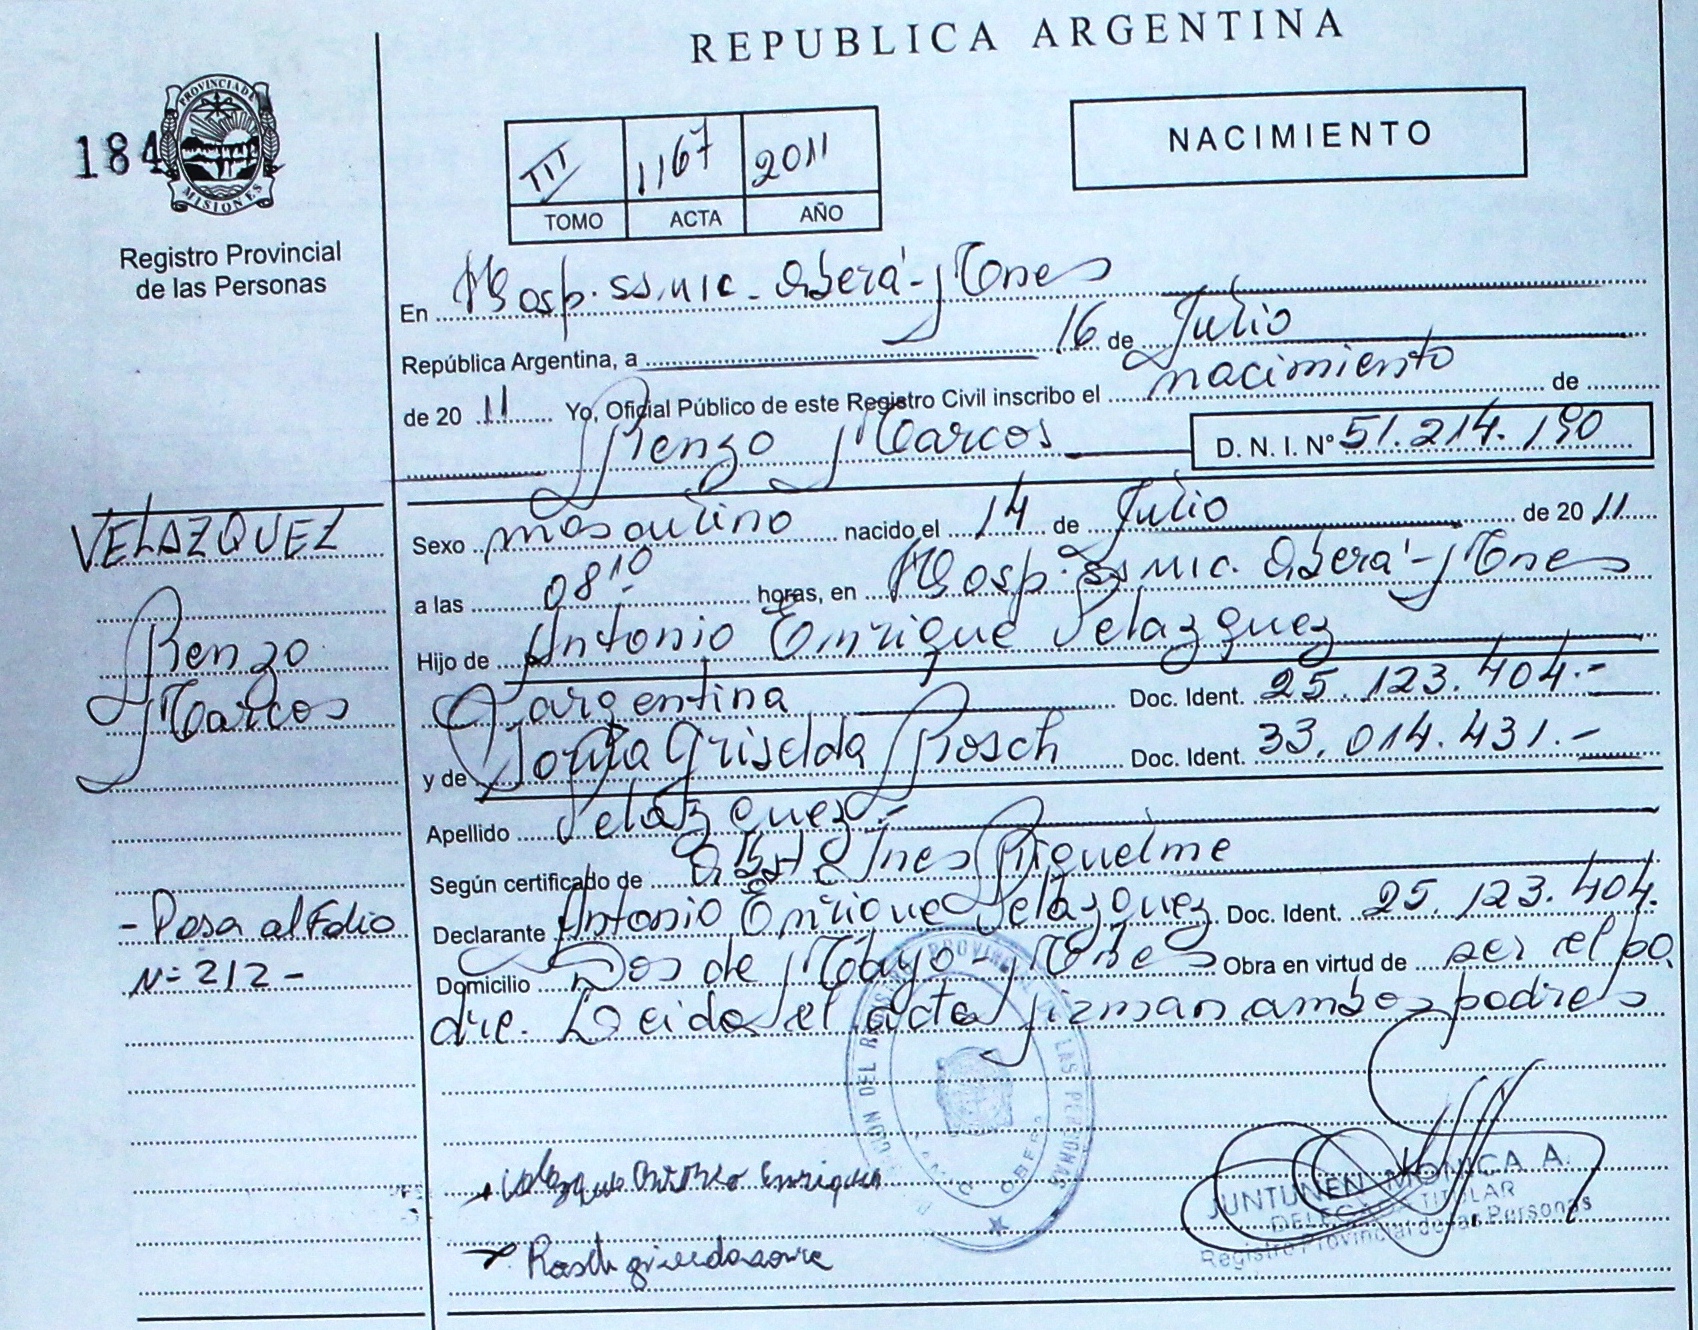 REPUBLICA ARGENTINA
184
PROVINCIA DE
MISIONES
Registro Provincial
de las Personas
III 1167 2011
TOMO ACTA AÑO
NACIMIENTO
En Hosp. SS.MIC. Oberá - Mones
República Argentina, a 16 de Julio
de 20 11 Yo, Oficial Público de este Registro Civil inscribo el nacimiento de
Renzo Marcos D. N. I. Nº 51.214.190
VELAZQUEZ
Renzo
Marcos
- Pasa al Folio
Nº 212 -
Sexo masculino nacido el 14 de Julio de 20 11
a las 08 10 horas, en Hosp. SS MIC. Oberá - Mones
Hijo de Antonio Enrique Velazquez
argentina Doc. Ident. 25.123.404.-
y de Sonia Griselda Rosch Doc. Ident. 33.014.431.-
Apellido Velazquez.-
Según certificado de Obst. Ines Riquelme
Declarante Antonio Enrique Velazquez Doc. Ident. 25.123.404.
Domicilio Dos de Mayo - Mones Obra en virtud de ser el pa
dre. Leida el acta firman ambos padres
Enrique
Rosch
JUNTUNEN MONICA A.
DELEGADA TITULAR
Registro Provincial de las Personas